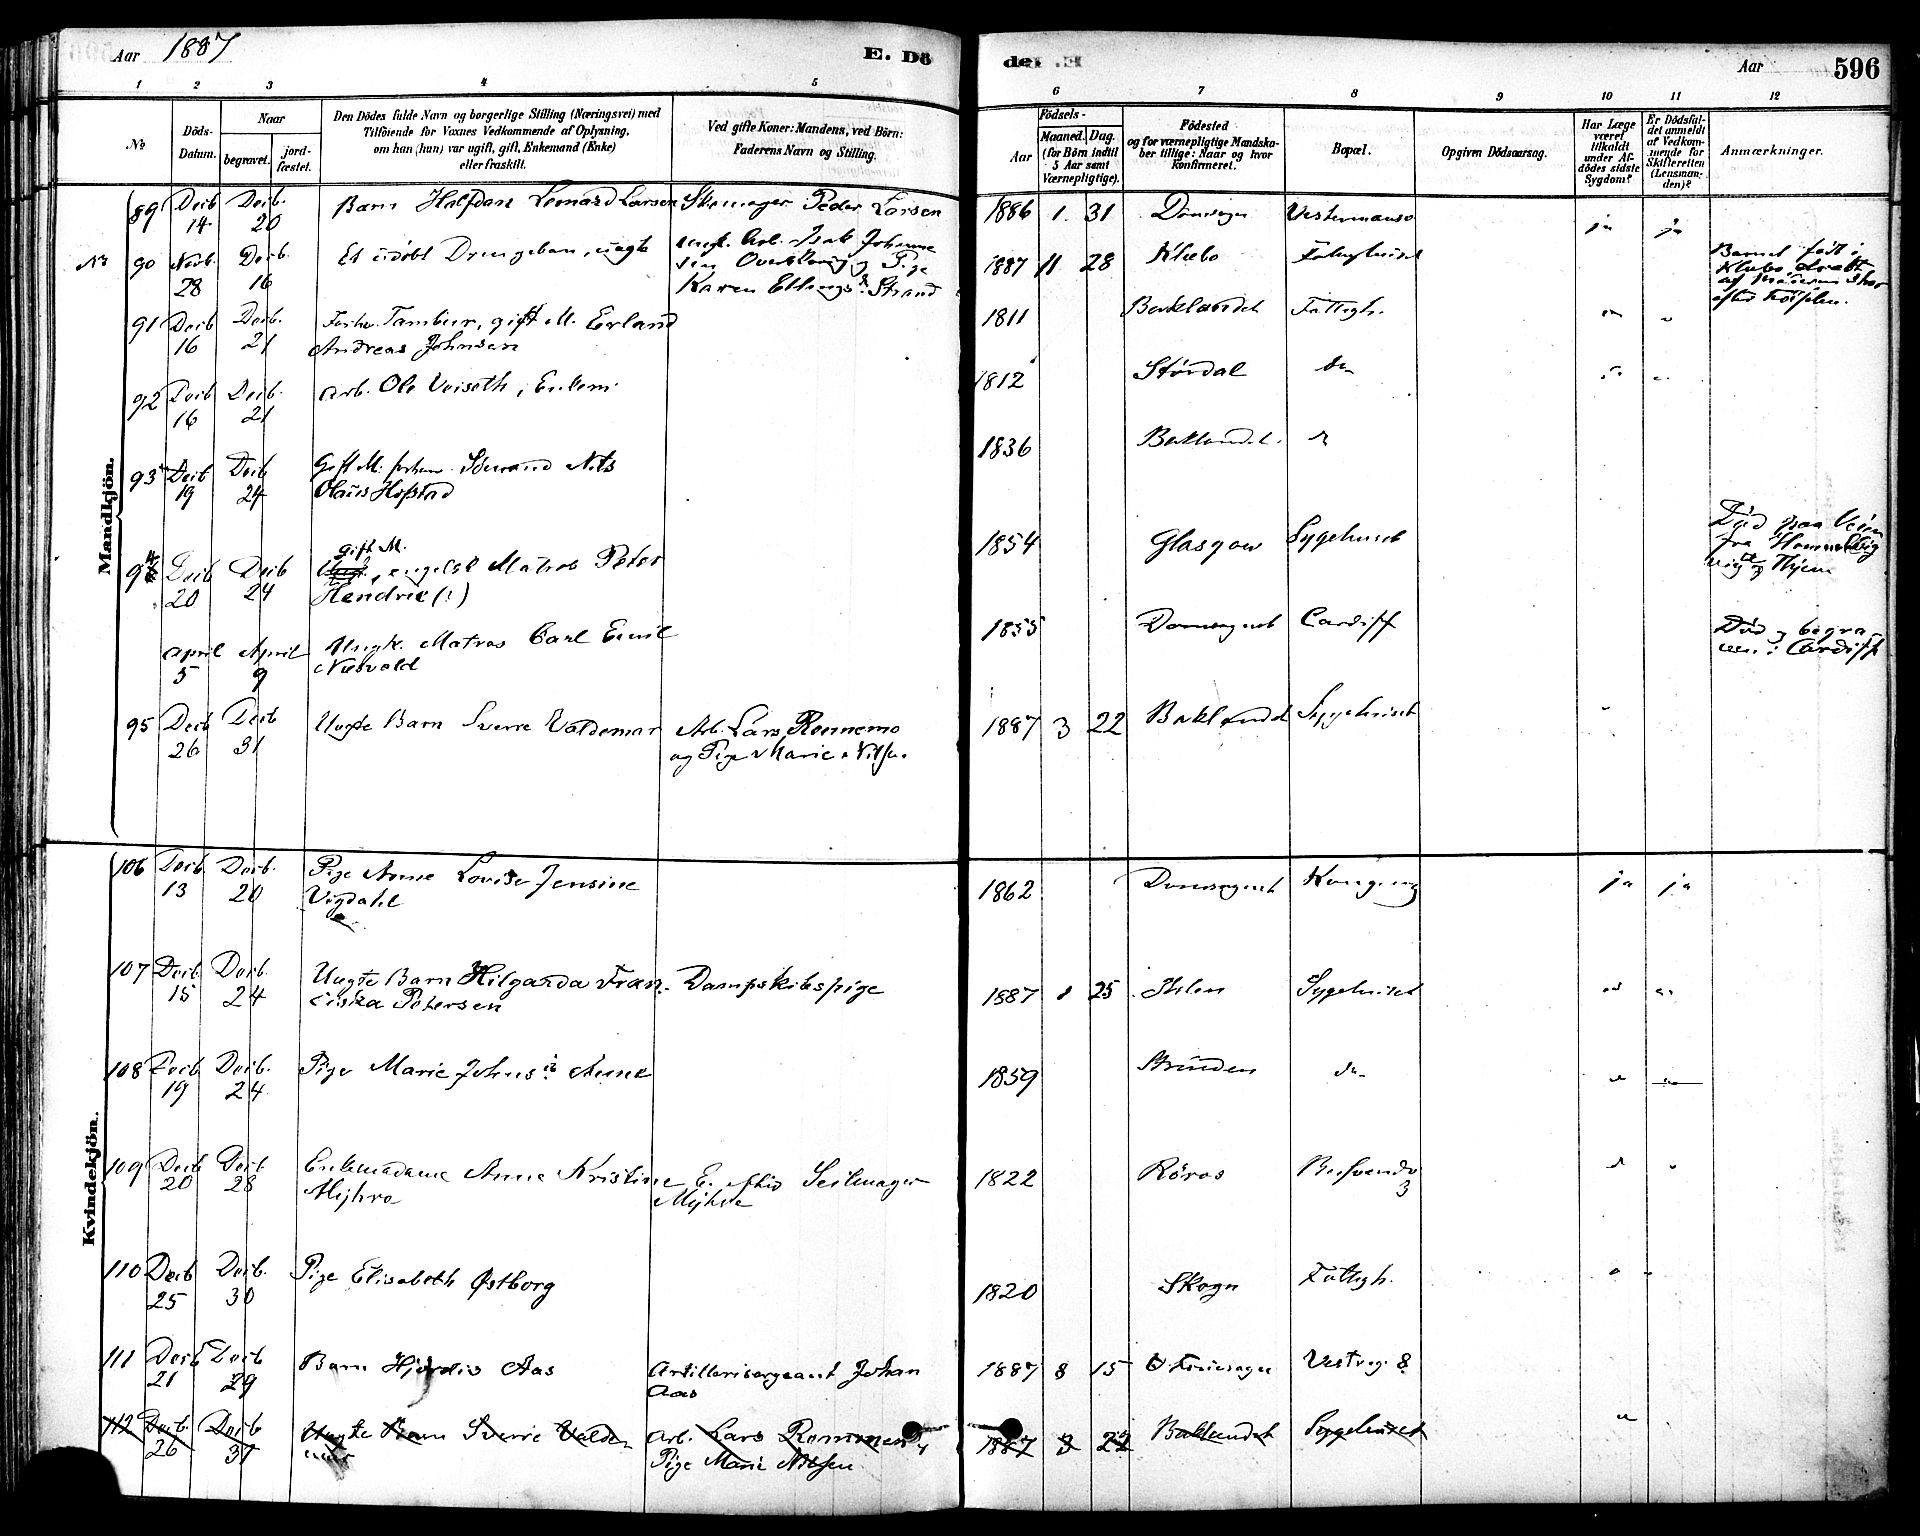 Aar 1887
E. Dö
de. E.
Aar 596
1 2 3 4 5
6 7 8 9 10 11 12
No
Döds-
Datum.
Naar
begravet.
jord-
fæstet.
Den Dödes fulde Navn og borgerlige Stilling (Næringsvei) med
Tilföiende for Voxnes Vedkommende af Oplysning,
om han (hun) var ugift, gift, Enkemand (Enke)
eller fraskilt.
Ved gifte Koner: Mandens, ved Börn:
Faderens Navn og Stilling.
Födsels-
Aar
Maaned. Dag.
(for Börn indtil
5 Aar samt
Værnepligtige).
Födested
og for værnepligtige Mandska-
ber tillige: Naar og hvor
Konfirmeret.
Bopæl.
Opgiven Dödsaarsag.
Har Læge
været
tilkaldt
under Af-
dödes sidste
Sygdom?
Er Dödsfal-
det anmeldt
af Vedkom-
mende for
Skifteretten
(Lensman-
den)?
Anmærkninger.
Mandkjön.
89 Decb 14 Decb. 20 Barn Halfdan Leonard Larsen Skomager Peder Larsen 1886 1. 31 ja ja
No 90 28 Decb. 16 Et udøbt Drengebarn, uægte
Karen Ellings Strand
1887 11 28 Klæbo
Barnet født i
Klæbo, dræbt
af Moderen
91 Decb 16 Decb. 21 Tambur, gift M. Erland
Andreas Johnsen
1811 Baklandet Fattigh.
92 Decb 16 Decb. 21 Arb. Ole Veiseth, Enkem. 1812 Størdal do
93 Decb 19 Decb 24 Gift M. forhen
Olaus Hofstad
1836 Baklandet do
94 Decb 20 Decb 24 gift M.
engelsk Matros Peter
Hendrie (?)
1854 Glasgow Sygehuset
Død paa Veien
fra Hommelvig
April 5 April 9 Ungk. Matros Carl Emil
1855 Domsognet Cardiff
Død og begra-
ven i Cardiff
95 Decb 26 Decb 31 Uægte Barn Sverre Valdemar Arb. Lars Ronnemo
og Pige Marie Nilsn.
1887 3 22 Baklandet Sygehuset
Kvindekjön.
106 Decb. 13 Decb. 20 Pige Anne Lovise Jensine
Vigdahl
1862 Domsognet ja ja
107 Decb. 15 Decb. 24 Uægte Barn Hilganda Fran-
ciska Petersen
Dampskibspige 1887 25 Ihlen Sygehuset
108 Decb. 19 Decb. 24 Pige Marie Johns. Aune 1859 Strinden do
109 Decb 20 Decb 28 Enkemadame Anne Kristine
Myhre
E. Seilmager
Myhre
1822 Röros 3
110 Decb 25 Decb. 30 Pige Elisabeth Østborg 1820 Skogn Fattigh.
111 Decb 21 Decb 29 Barn Hjørdis Aas Artillerisergeant Johan
Aas
1887 8 15 Vestreg. 8
112 Decb. 26 Decb 31 Uægte Barn Sverre Valde-
mar
Arb. Lars Ronnemo og
Pige Marie Nilsen
1887 3 22 Baklandet Sygehuset